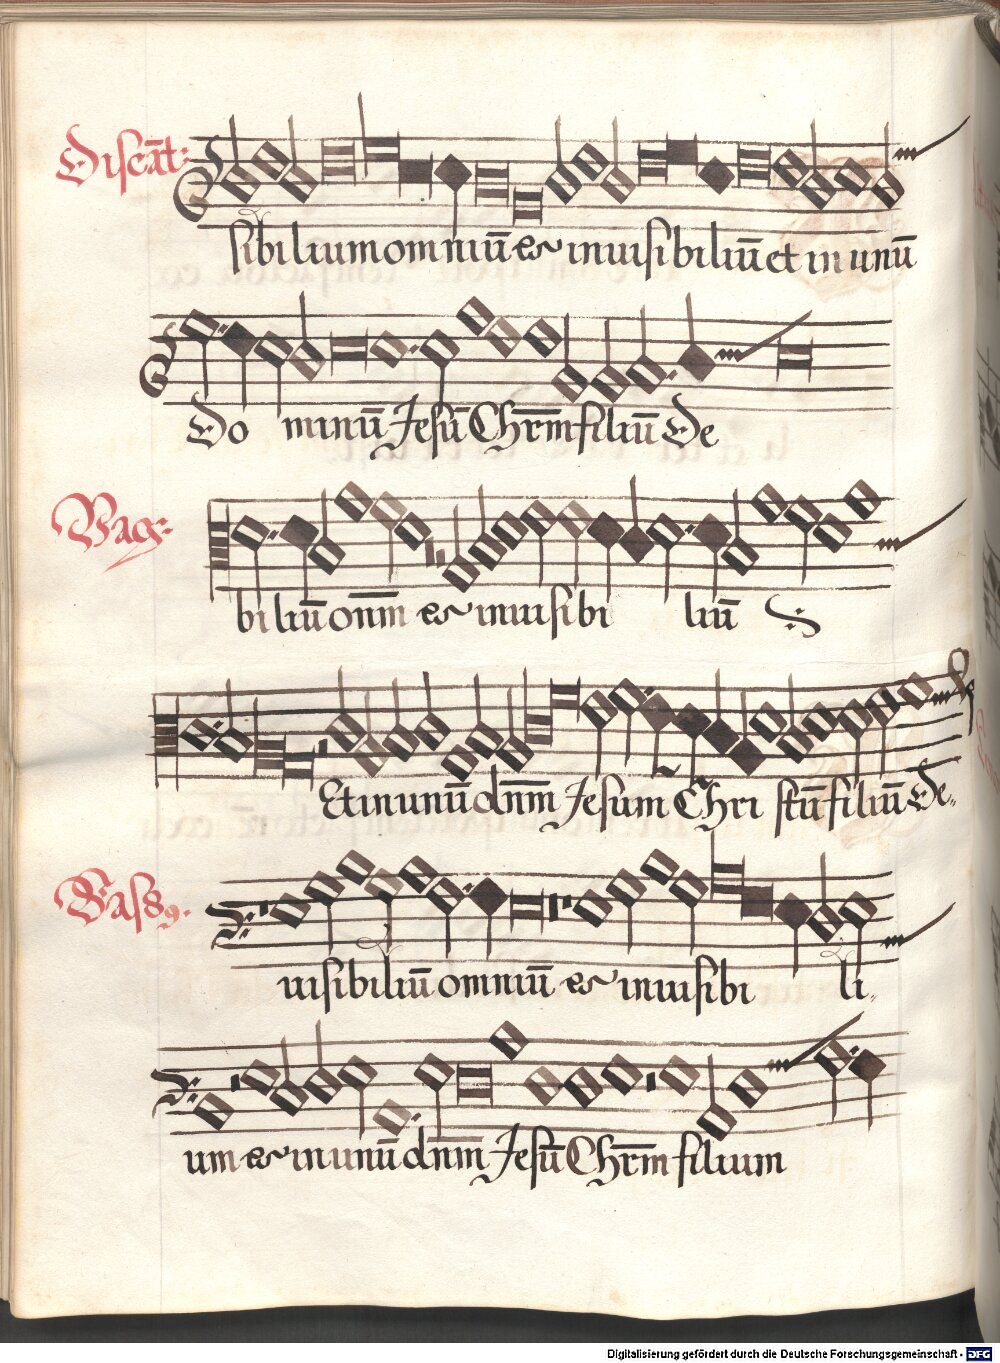 Discāt:
sibilium omniū et inuisibiliū et in unū
Do minū Jesū Chrm filiū De
Vag:
biliū onm et inuisibi liū
Et in unū dnm Jesum Chri stū filiū De
Bass9.
uisibiliū omniū et inuisibi li
um et in unū dnm Jesū Chrm filium
Digitalisierung gefördert durch die Deutsche Forschungsgemeinschaft - DFG